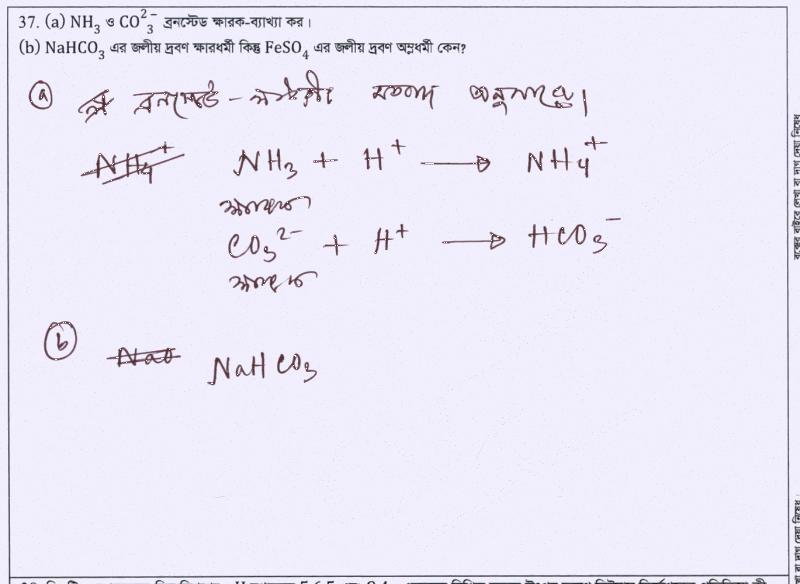 37. (a) NH₃ ও CO²⁻₃ ব্রনস্টেড ক্ষারক-ব্যাখ্যা কর।
(b) NaHCO₃ এর জলীয় দ্রবণ ক্ষারধর্মী কিন্তু FeSO₄ এর জলীয় দ্রবণ অম্লধর্মী কেন?
(a) ব্রনস্টেড - লাউরী মতবাদ অনুসারে।
NH₄⁺ NH₃ + H⁺ → NH₄⁺
ক্ষারক
CO₃²⁻ + H⁺ → HCO₃⁻
ক্ষারক
(b) NaO NaHCO₃